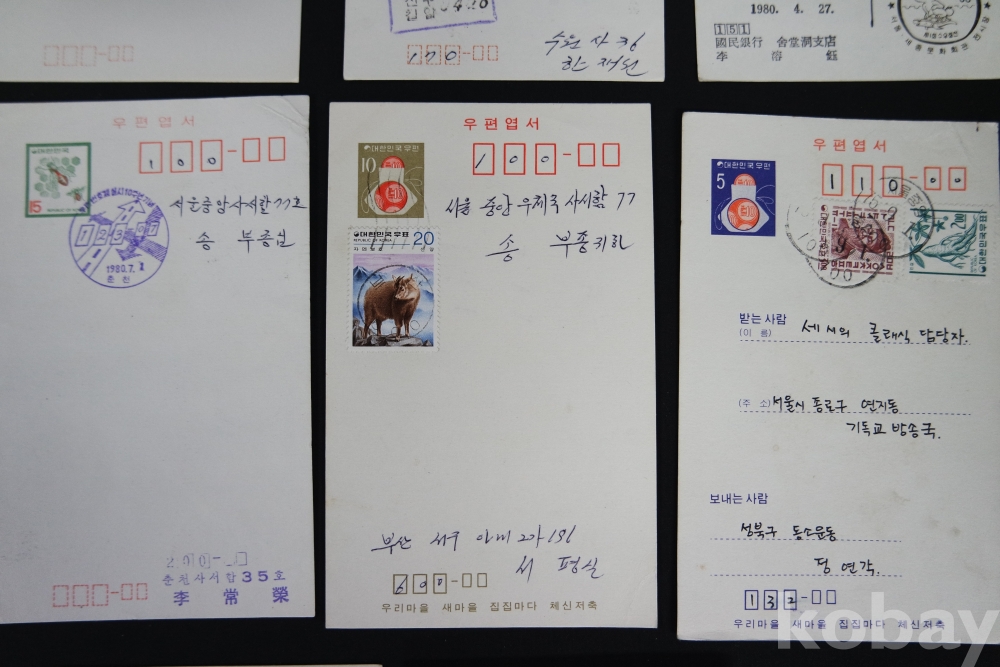 170
수원 사창
한 재선
1980. 4. 27.
151
國民銀行 舍堂洞支店
李 溶 鈺
우편엽서
대한민국
15
100-
서울중앙사서함 77호
송 부종님
1980.7.1
춘천
200-
춘천사서함 35호
李 常 榮
우편엽서
대한민국우편
10
100-
서울 중앙 우체국 사서함 77
송 부종귀하
대한민국우표 20
REPUBLIC OF KOREA
부산 서구 아미 2가 191
서 평실
600-
우리마을 새마을 집집마다 체신저축
우편엽서
대한민국우편
5
110-00
받는사람
(이 름) 세시의 클래식 담당자.
(주 소) 서울시 종로구 연지동
기독교 방송국.
보내는사람
성북구 동소문동
정 연각.
132-
우리마을 새마을 집집마다 체신저축
kobay